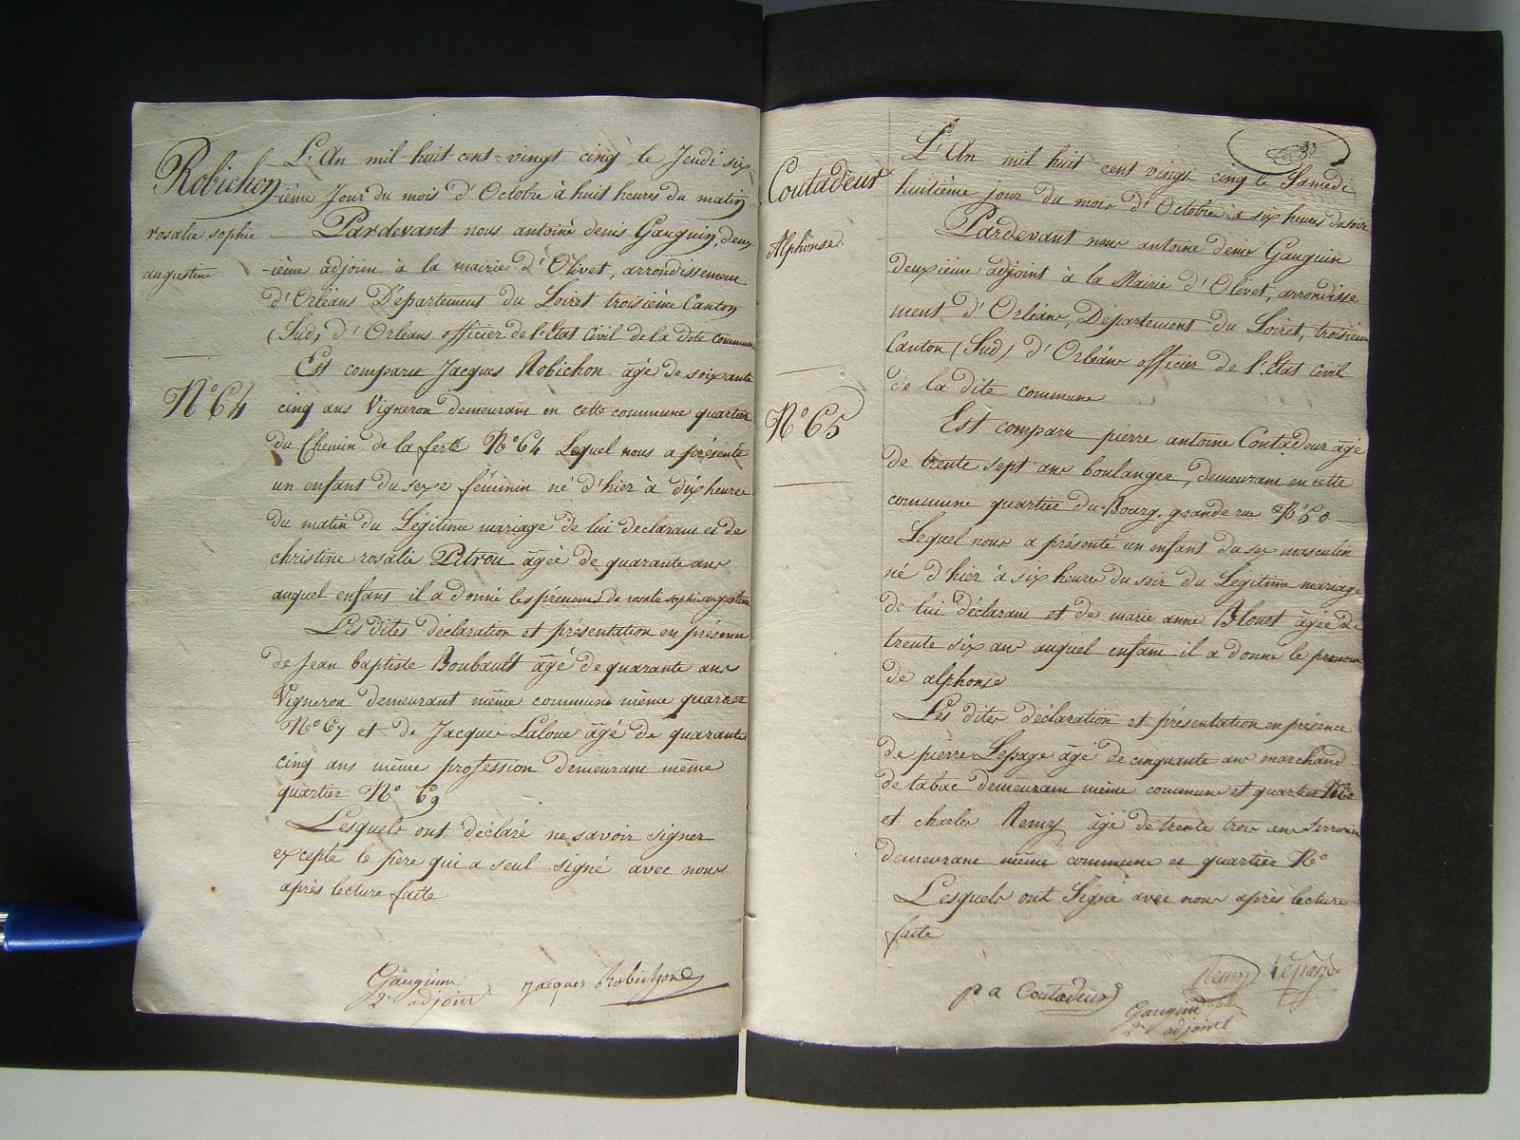 Robichon
rosalie sophie
augustine
N° 64
L'An mil huit cent vingt cinq le Jeudi six
ième Jour du mois d'Octobre à huit heures du matin
Pardevant nous antoine denis Gauguin, deux
ième adjoint à la mairie d'Olivet, arrondissement
d'Orléans Département du Loiret troisième Canton
(Sud) d'Orléans officier de l'Etat Civil de la dite commune
Est comparu Jacques Robichon âgé de soixante
cinq ans Vigneron demeurant en cette commune quartier
du Chemin de la ferté N° 64 Lequel nous a présenté
un enfant du sexe féminin né d'hier à dix heures
du matin du Légitime mariage de lui déclarant et de
christine rosalie Pitrou âgée de quarante ans
auquel enfant il a donné les prénoms de rosalie sophie augustine
Les dites déclaration et présentation en présence
de Jean baptiste Boubault âgé de quarante ans
Vigneron demeurant même commune même quartier
N° 67 et de Jacques Laloue âgé de quarante
cinq ans même profession demeurant même
quartier N° 69
Lesquels ont déclaré ne savoir signer
excepté le père qui a seul signé avec nous
après lecture faite
Gauguin
2e adjoint
jacques Robichon
Coutadeur
Alphonse
N° 65
L'An mil huit cent vingt cinq le Samedi
huitième jour du mois d'Octobre à six heures du soir
Pardevant nous antoine denis Gauguin
deuxième adjoint à la Mairie d'Olivet, arrondisse
ment d'Orléans, Département du Loiret, troisième
Canton (Sud) d'Orléans officier de l'Etat Civil
de la dite commune
Est comparu pierre antoine Coutadeur âgé
de trente sept ans boulanger, demeurant en cette
commune quartier du Bourg, grande rue N° 50
Lequel nous a présenté un enfant du sex masculin
né d'hier à six heures du soir du Légitime mariage
de lui déclarant et de marie anne Blouet âgée de
trente six ans auquel enfant il a donné le prénom
de alphonse
Les dites déclaration et présentation en présence
de pierre Lepage âgé de cinquante ans marchand
de tabac demeurant même commune et quartier
et charles Remy âgé de trente trois ans
demeurant même commune et quartier N°
Lesquels ont Signé avec nous après lecture
faite
Remy Lepage
p a Coutadeur
Gauguin
2e adjoint